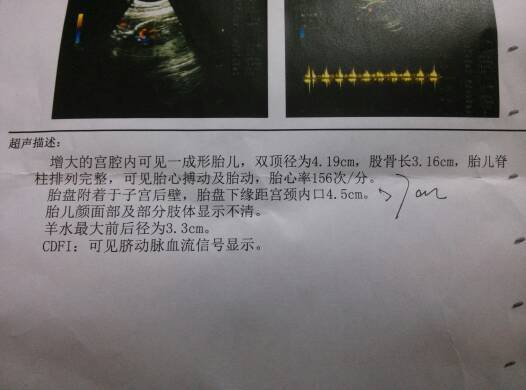 超声描述:
增大的宫腔内可见一成形胎儿，双顶径为4.19cm，股骨长3.16cm，胎儿脊
柱排列完整，可见胎心搏动及胎动，胎心率156次/分。
胎盘附着于子宫后壁，胎盘下缘距宫颈内口4.5cm。
胎儿颜面部及部分肢体显示不清。
羊水最大前后径为3.3cm。
CDFI: 可见脐动脉血流信号显示。